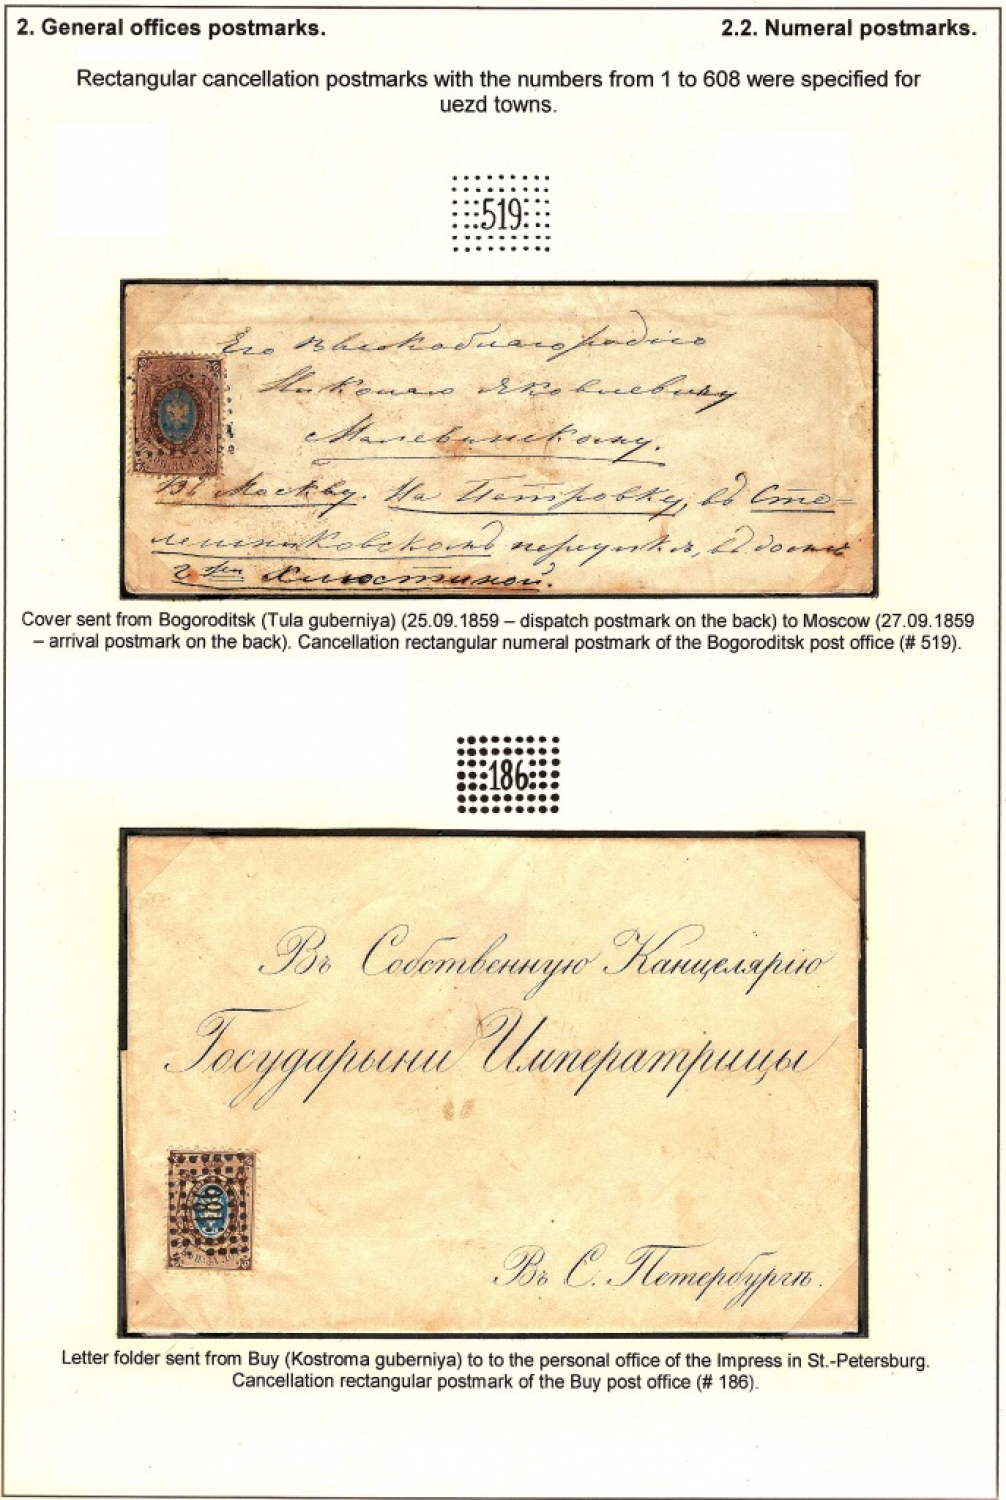 2. General offices postmarks. 2.2. Numeral postmarks.
Rectangular cancellation postmarks with the numbers from 1 to 608 were specified for
uezd towns.
519
Его Высокоблагородію
Николаю Яковлевичу
Малевинскому.
Въ Москву. На Петровку, въ Сто=
лешниковскомъ переулкѣ, въ домѣ
г-жи Хлюстиной.
Cover sent from Bogoroditsk (Tula guberniya) (25.09.1859 – dispatch postmark on the back) to Moscow (27.09.1859
– arrival postmark on the back). Cancellation rectangular numeral postmark of the Bogoroditsk post office (# 519).
186
Въ Собственную Канцелярію
Государыни Императрицы
186
Въ С. Петербургѣ.
Letter folder sent from Buy (Kostroma guberniya) to to the personal office of the Impress in St.-Petersburg.
Cancellation rectangular postmark of the Buy post office (# 186).